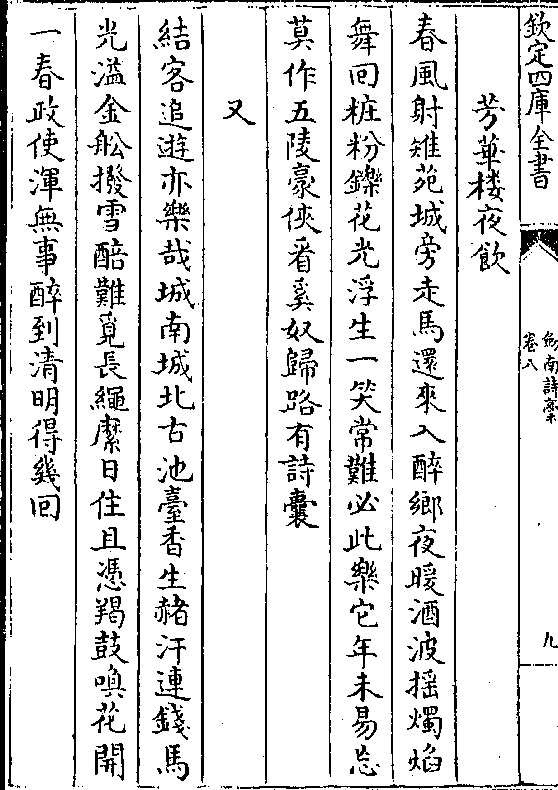 欽定四庫全書
劍南詩稾
卷八
九
芳華樓夜飲
春風射雉苑城旁走馬還來入醉鄉夜暖酒波摇燭焰
舞回粧粉鑠花光浮生一笑常難必此樂它年未易忘
莫作五陵豪俠看奚奴歸路有詩囊
又
結客追遊亦樂哉城南城北古池臺香生赭汗連錢馬
光溢金船撥雪醅難覓長繩縻日住且憑羯鼓喚花開
一春政使渾無事醉到清明得幾回